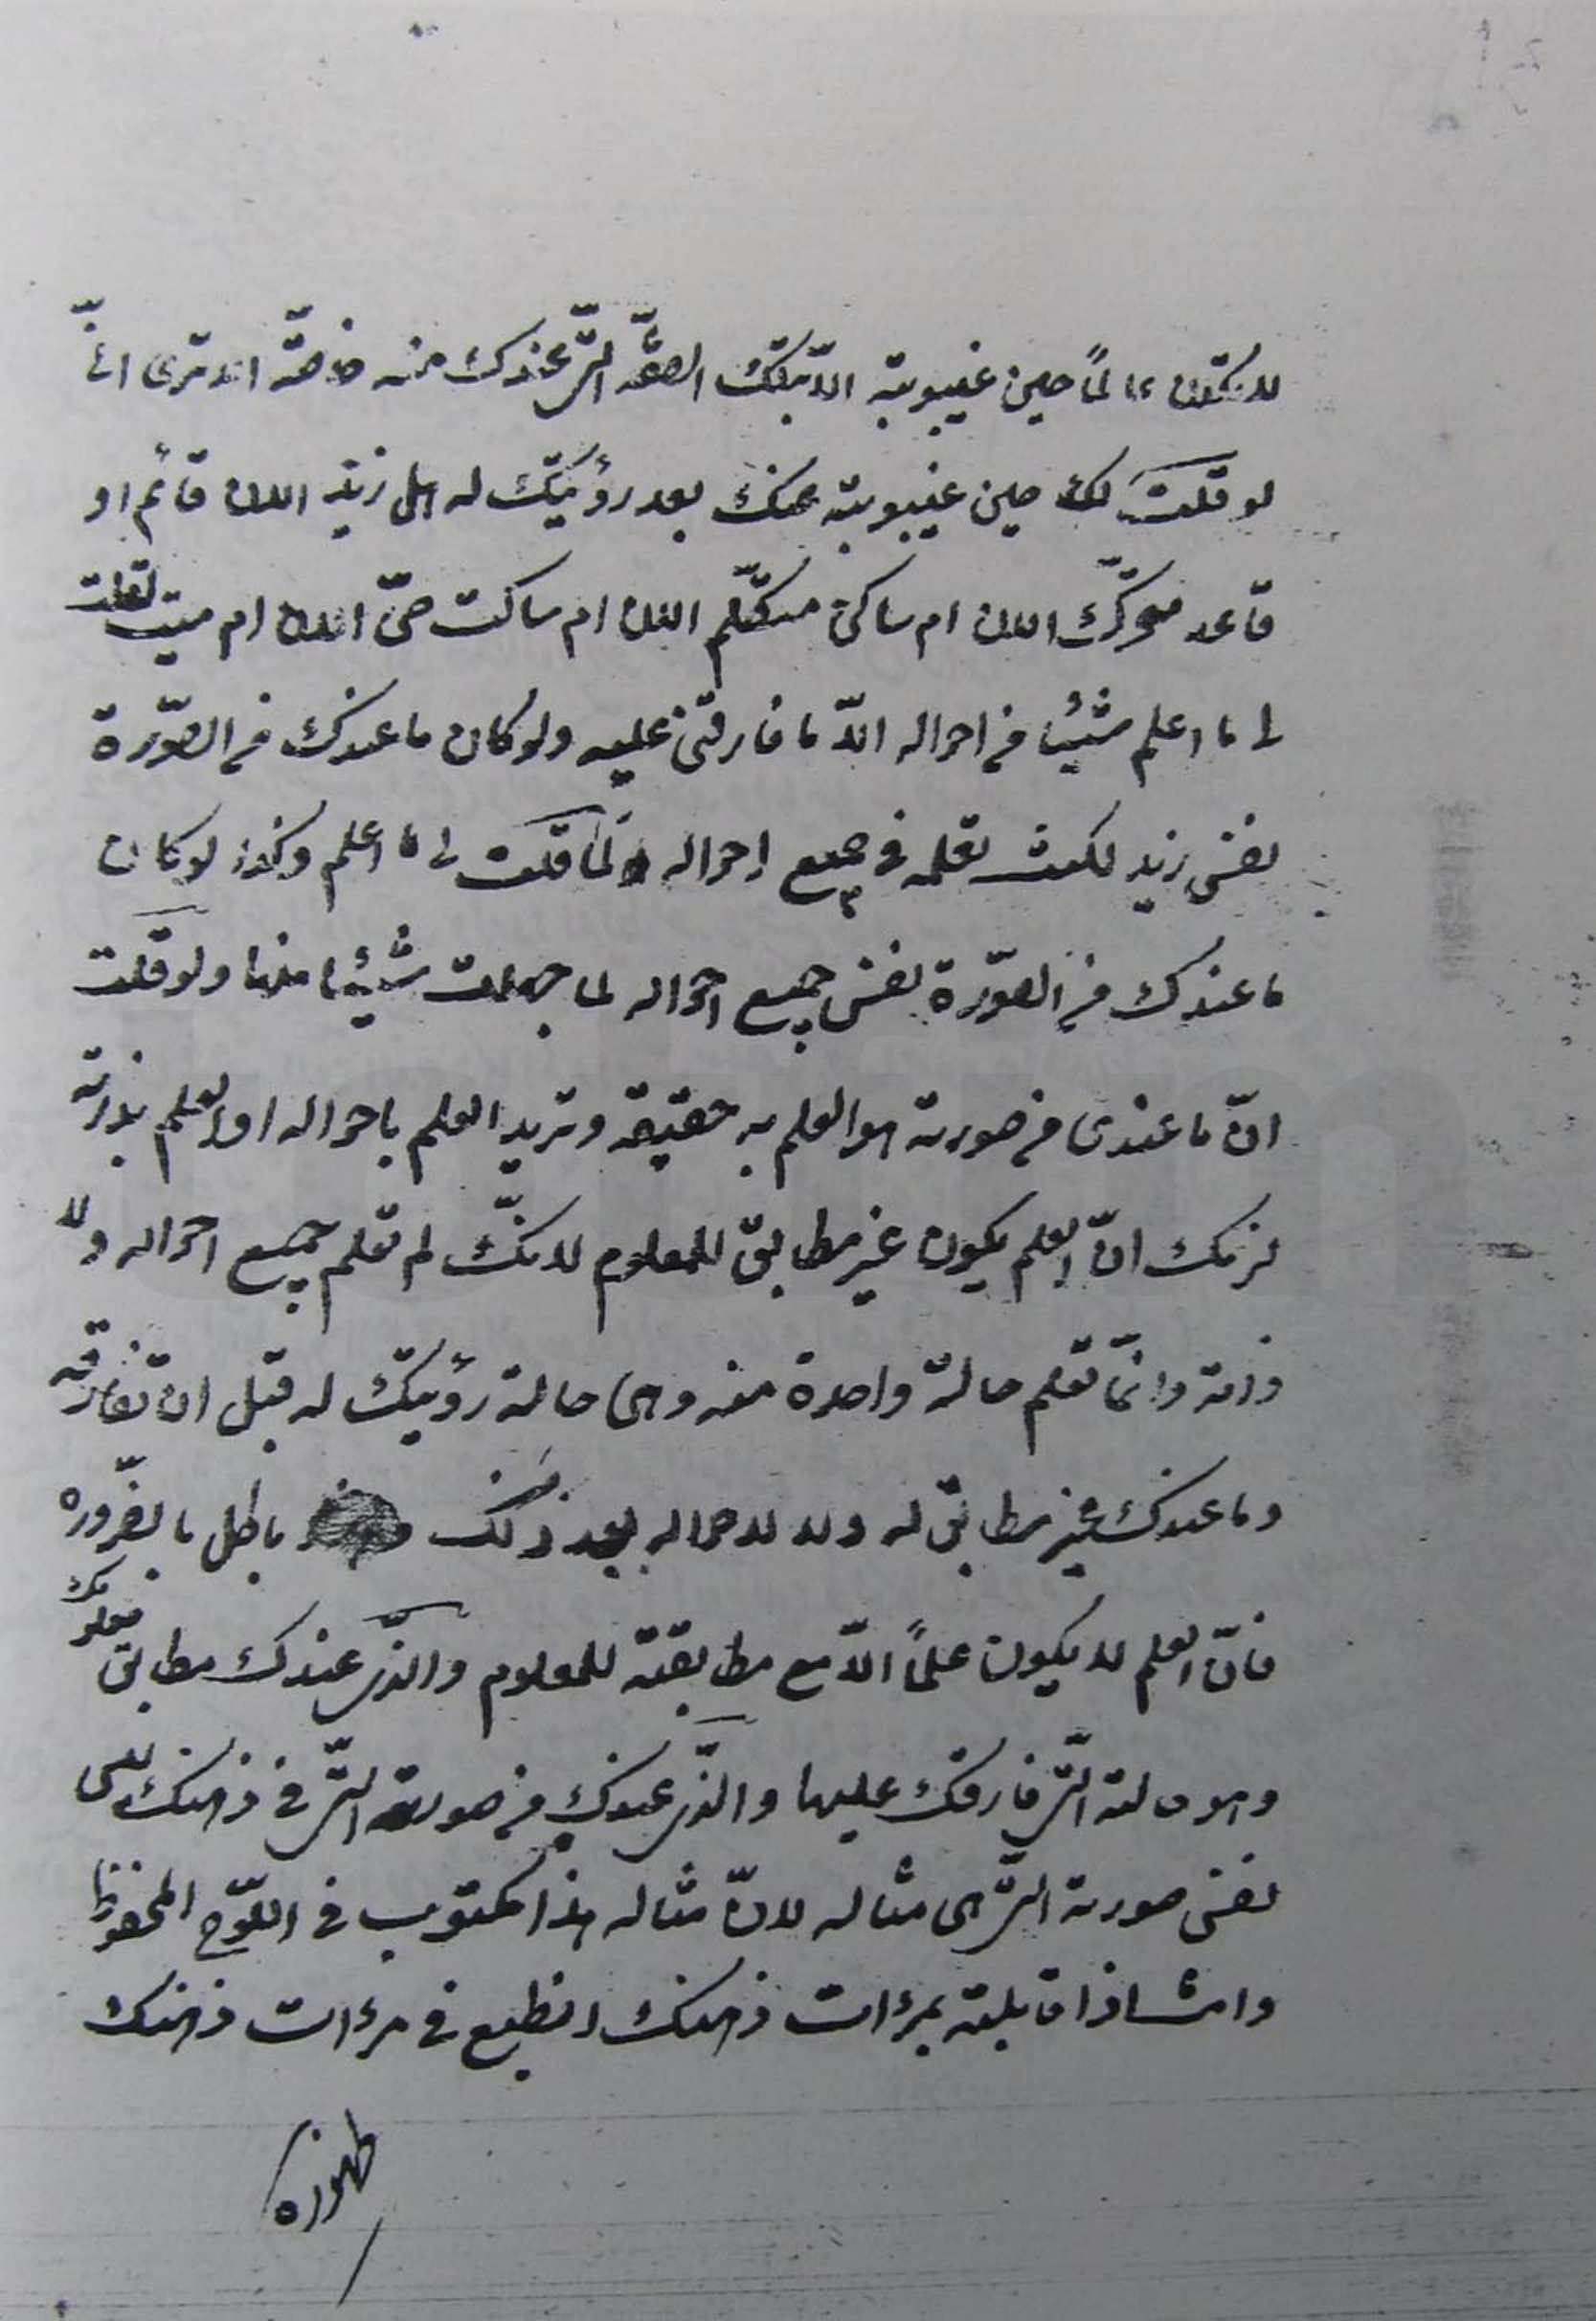 لا تكون عالماً حين غيبوبته الّا بتلك الصفة الّتى عندك منه خاصّة الا ترى انّى
لو قلت لك حين غيبوبته عنك بعد رؤيتك له هل زيد الان قائم او
قاعد متحرّك الان ام ساكن متكلّم الان ام ساكت حىّ الان ام ميت لقلت
لى ما اعلم شيئا فى احواله الّا ما فارقنى عليه ولو كان ما عندك فى الصّورة
نفس زيد لكنت تعلمه فى جميع احواله و لما قلت لى ما اعلم وكذا لو كان
ما عندك فى الصّورة نفس جميع احواله لما جهلت شيئا منها ولو قلت
انّ ما عندى فى صورته هو العلم به حقيقة وتريد العلم باحواله او العلم بذاته
لزمك انّ العلم يكون غير مطابق للمعلوم لانّك لم تعلم جميع احواله ولا
ذاته وانّما تعلم حالة واحدة منه وهى حالة رؤيتك له قبل ان تفارقه
وما عندك غير مطابق له ولا لاحواله بعد ذلك باطل بالضّرورة
فانّ العلم لا يكون علماً الّا مع مطابقته للمعلوم والّذى عندك مطابق معلومك
وهو حالته الّتى فارقك عليها والّذى عندك فى صورته الّتى فى ذهنك هى
نفس صورته الّتى هى مثاله لانّ مثاله هذا مكتوب فى اللّوح المحفوظ
وانت اذا قابلته بمرءات ذهنك انطبع فى مرءات ذهنك
ظهوره